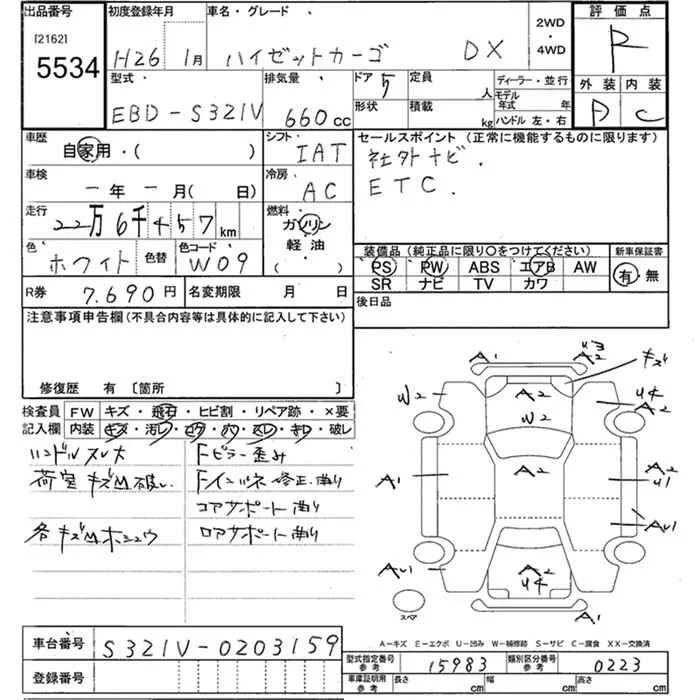 出品番号 [2162] 5534
初度登録年月 H26年 1月
車名・グレード ハイゼットカーゴ DX
2WD・4WD
評価点 R
外装 D 内装 C
型式 EBD-S321V
排気量 660cc
ドア 5 形状
定員 人 積載 kg
ディーラー・並行
モデル年式 年
ハンドル 左・右
車歴 自家用・( )
シフト IAT
セールスポイント (正常に機能するものに限ります)
社外ナビ.
ETC.
車検 ー年ー月( 日)
冷房 AC
走行 22万6千457km
燃料 ガソリン 軽油 ( )
色 ホワイト 色替 色コード W09
装備品 (純正品に限り○をつけてください)
新車保証書
PS PW ABS エアB AW
有・無
SR ナビ TV カワ
R券 7,690円 名変期限 月 日
後日品
注意事項申告欄 (不具合内容等は具体的に記入して下さい)
修復歴 有 〔箇所 〕
検査員記入欄
FW キズ・飛石・ヒビ割・リペア跡・×要
内装 キズ・汚レ・コゲ・穴・スレ・キレ・破レ
ハンドルスレ大
荷室キズM破レ.
各キズMホシュウ
Fピラー歪み
Fインパネ修正.曲り
コアサポート曲り
ロアサポート曲り
A1 U3 A2 キズ
W2 A2 U4 A2
W2
A1 A2 A2 U1
AU1
AU1 A2 U4
A1
スペア
A−キズ E−エクボ U−凹み W−補修跡 S−サビ C−腐食 XX−交換済
車台番号 S321V-0203159
登録番号
型式指定番号 参考 15983 類別区分番号 参考 0223
車庫証明用 参考 長さ cm 幅 cm 高さ cm